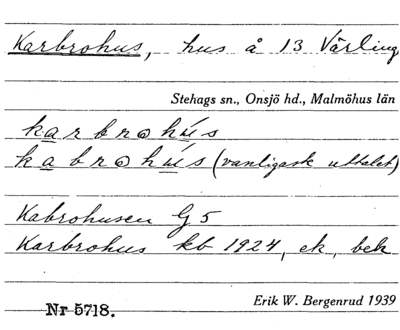 Karbrohus, hus å 13 Värling
Stehags sn., Onsjö hd., Malmöhus län
karbrohús
kabrohús (vanligask uttalet)
Kabrohusen G5
Karbrohus kb 1924, ek, bek
Nr 5718.
Erik W. Bergenrud 1939